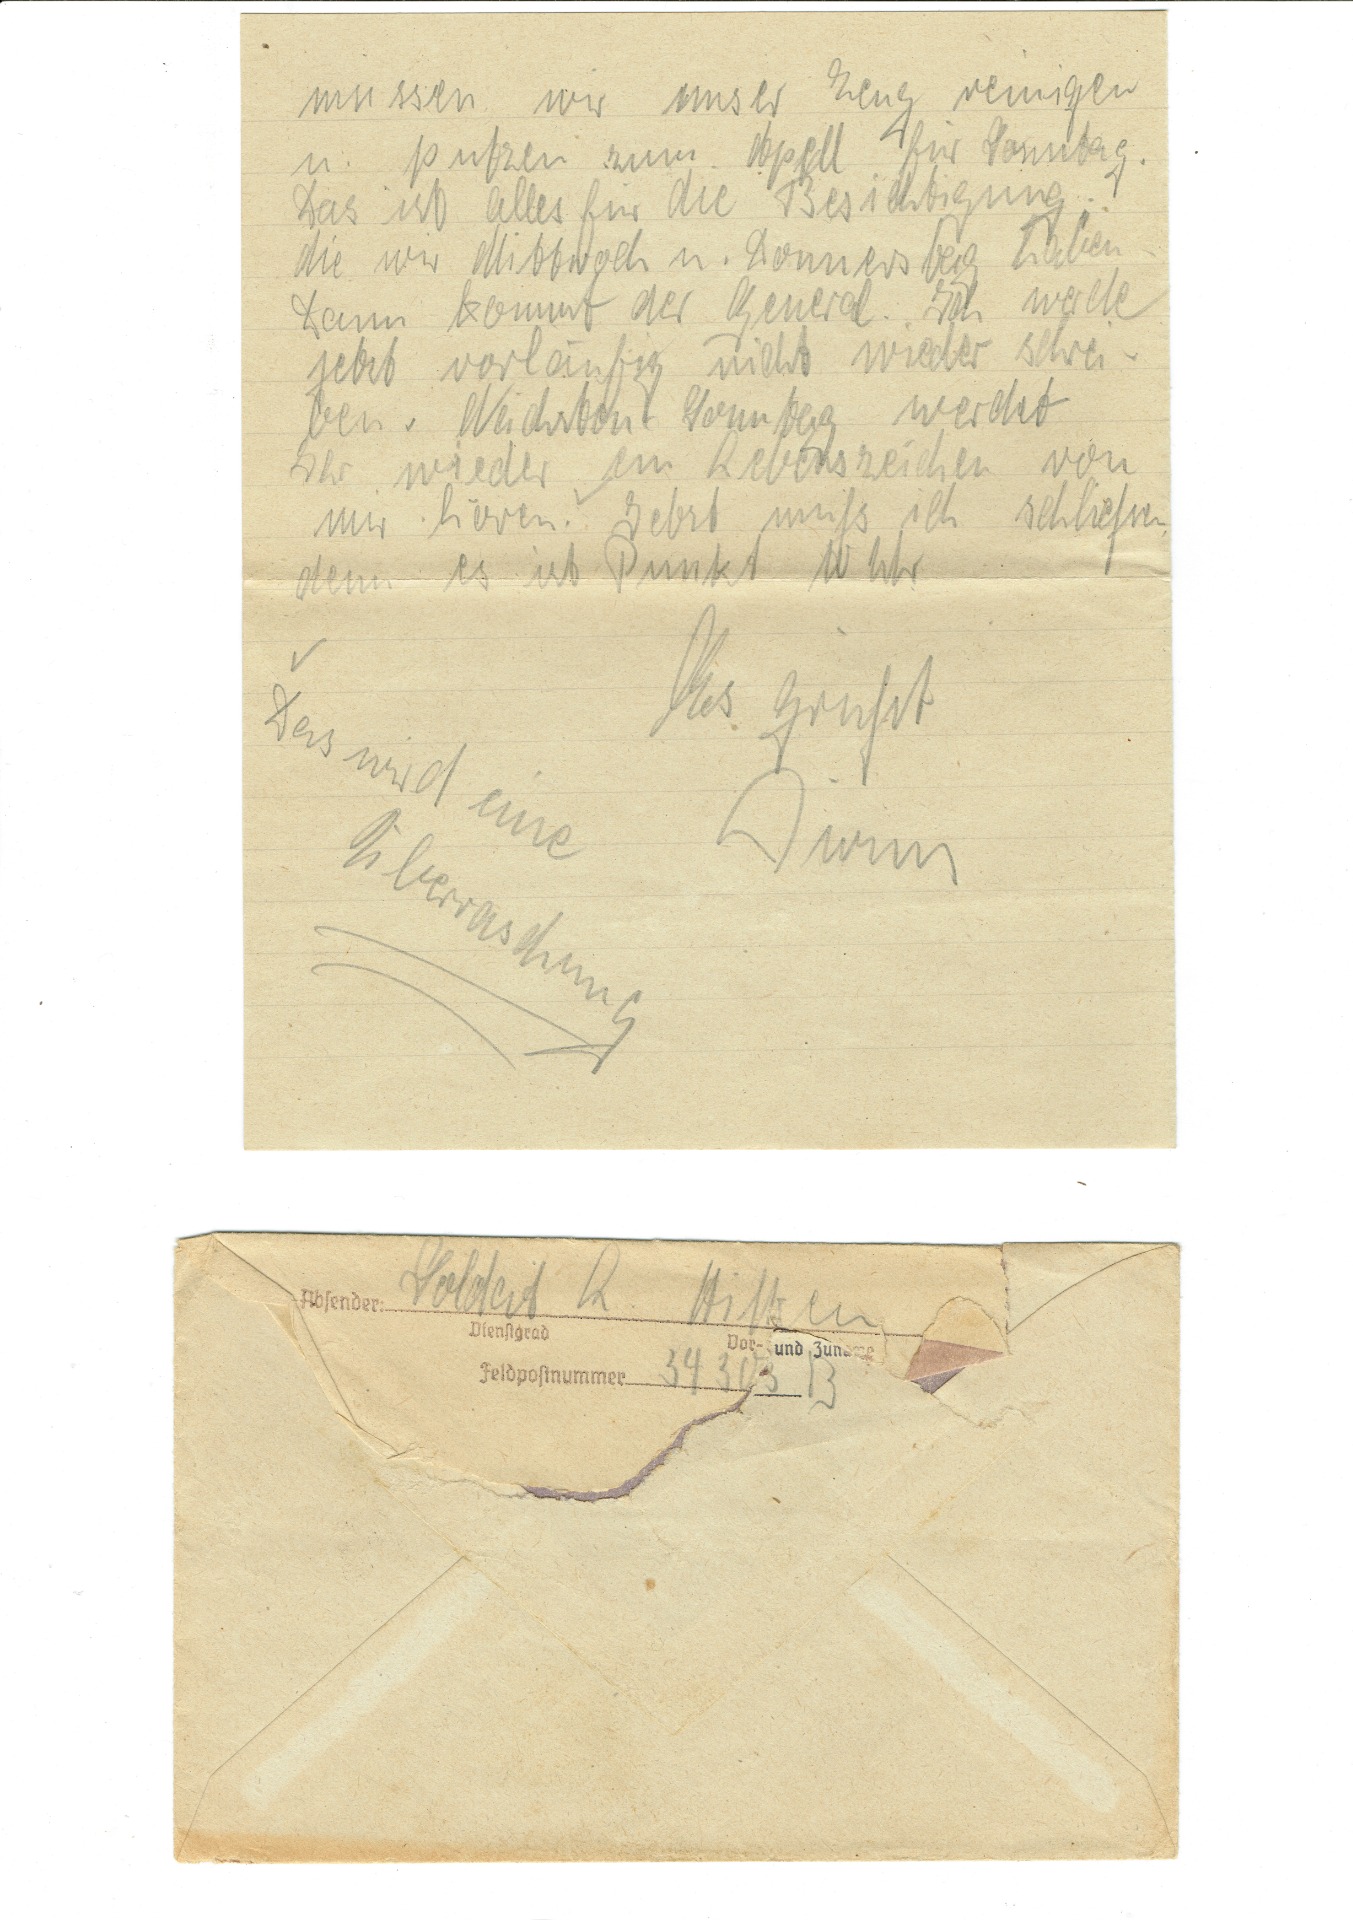 müssen wir unser Zeug reinigen
u. putzen zum Apell für Sonntag.
Das ist alles für die Besichtigung.
die wir Mittwoch u. Donnerstag haben
Dann kommt der General. Ich werde
jetzt vorläufig nicht wieder schrei-
ben. Nächsten Sonntag werdet
Ihr wieder ein Lebenszeichen von
mir hören. Jetzt muß ich schließen,
denn es ist Punkt 10 Uhr
Es grüßt
✓
Das wird eine
Überraschung
Absender: Soldat R
Dienstgrad Vor- und Zuname
Feldpostnummer 34 303 B